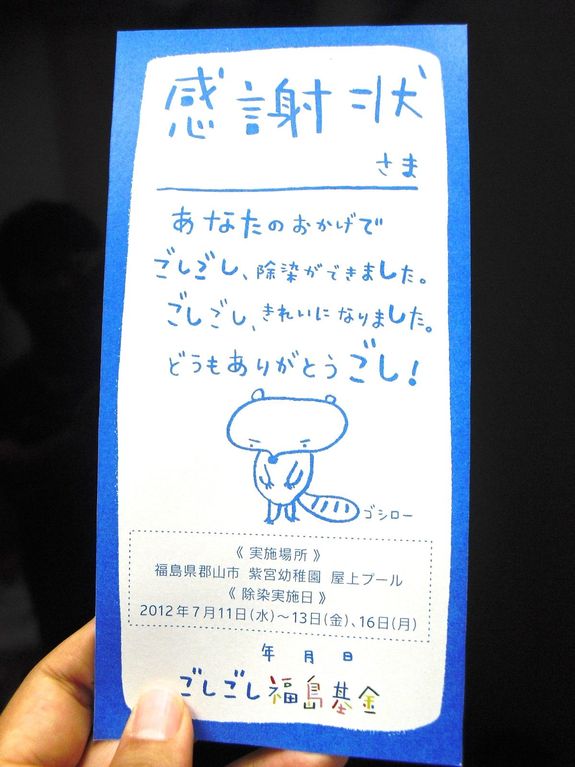 感謝状
さま
あなたのおかげで
ごしごし、除染ができました。
ごしごし、きれいになりました。
どうもありがとうごし！
ゴシロー
《 実施場所 》
福島県郡山市 紫宮幼稚園 屋上プール
《 除染実施日 》
2012年7月11日(水)～13日(金)、16日(月)
年 月 日
ごしごし福島基金